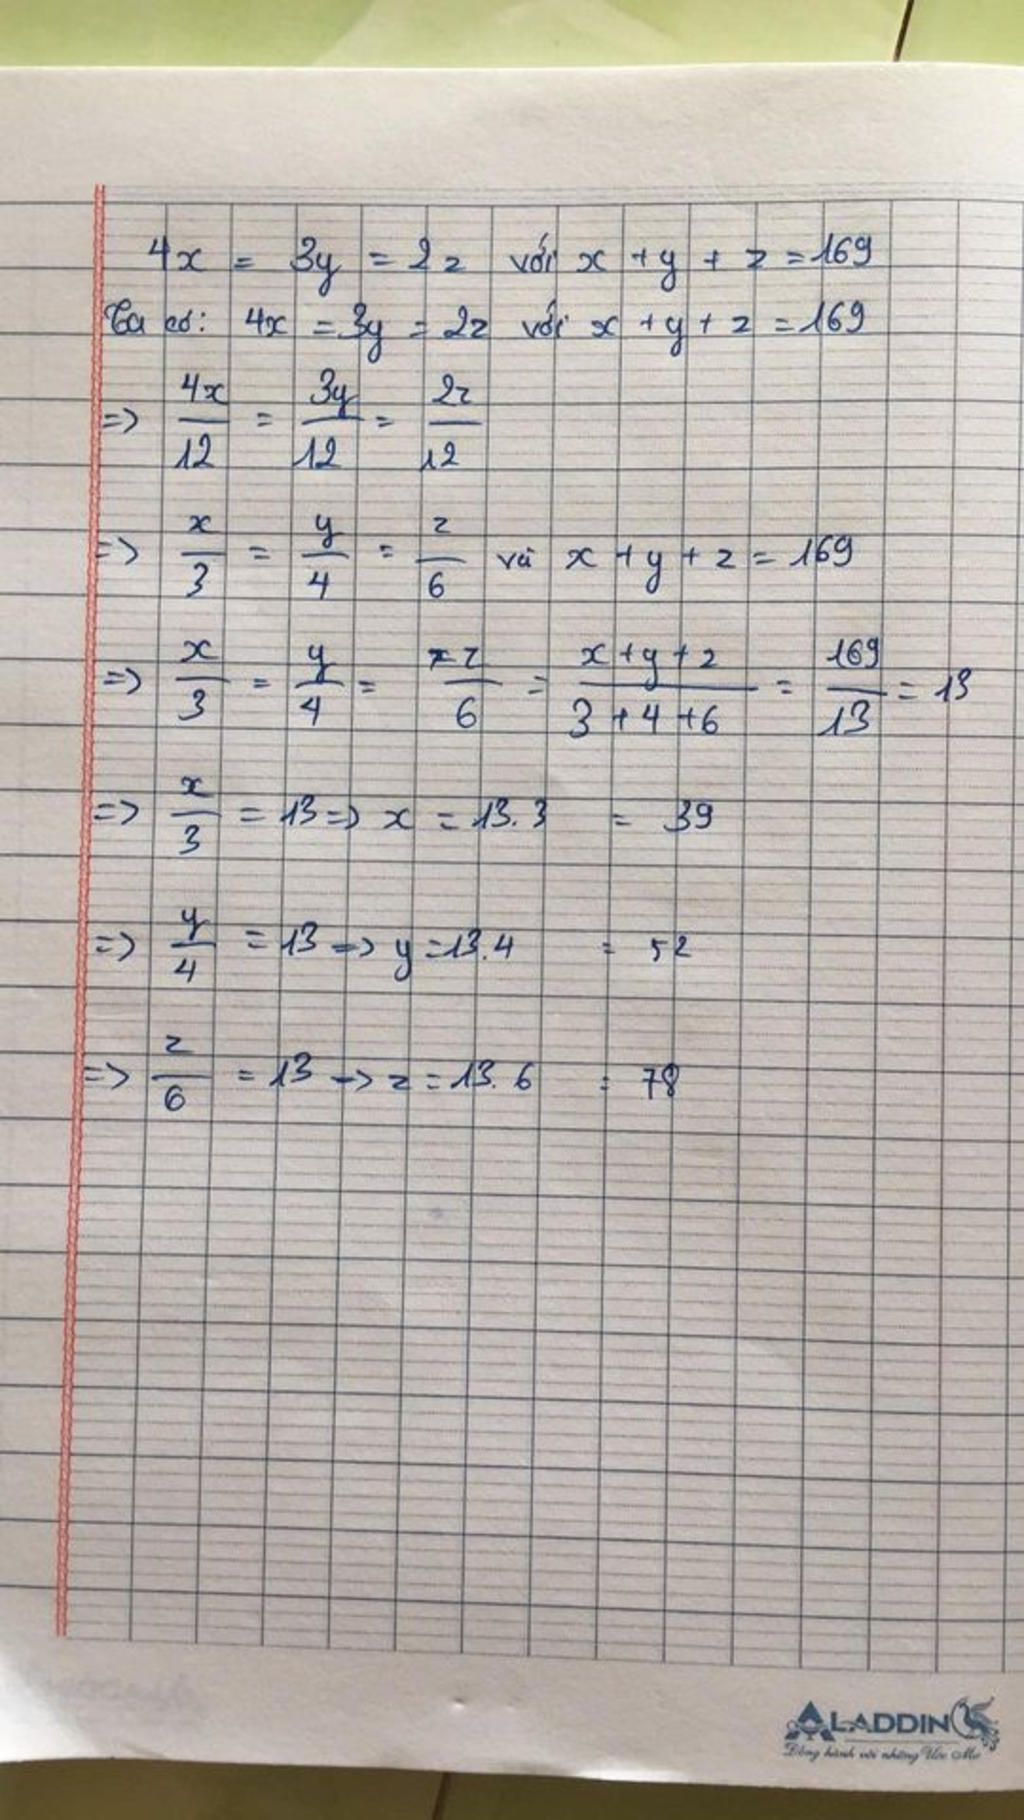 4x = 3y = 2z với x + y + z = 169
Ta có: 4x = 3y = 2z với x + y + z = 169
=> 4x/12 = 3y/12 = 2z/12
=> x/3 = y/4 = z/6 và x + y + z = 169
=> x/3 = y/4 = z/6 = x + y + z / 3 + 4 + 6 = 169/13 = 13
=> x/3 = 13 => x = 13.3 = 39
=> y/4 = 13 => y = 13.4 = 52
=> z/6 = 13 => z = 13.6 = 78
ALADDIN
Đồng hành với những Ước Mơ